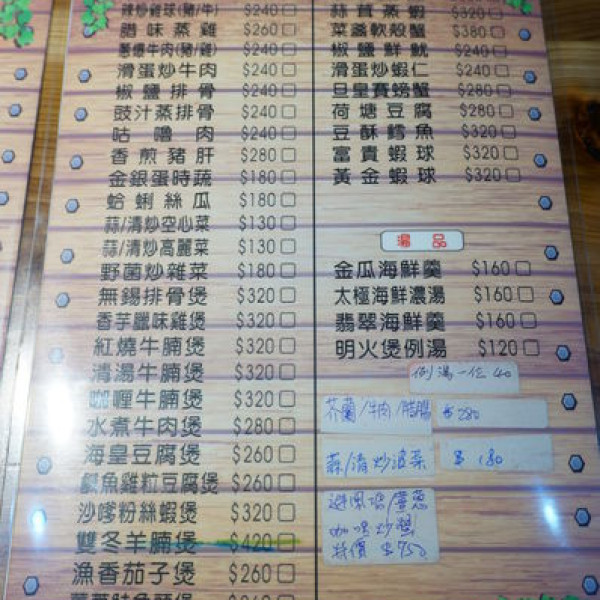 辣炒雞球(豬/牛) $240☐
腊味蒸雞 $260☐
蔥爆牛肉(豬/雞) $240☐
滑蛋炒牛肉 $240☐
椒鹽排骨 $240☐
豉汁蒸排骨 $240☐
咕嚕肉 $240☐
香煎豬肝 $280☐
金銀蛋時蔬 $180☐
蛤蜊絲瓜 $180☐
蒜/清炒空心菜 $130☐
蒜/清炒高麗菜 $130☐
野菌炒雜菜 $180☐
無錫排骨煲 $320☐
香芋臘味雞煲 $320☐
紅燒牛腩煲 $320☐
清湯牛腩煲 $320☐
咖喱牛腩煲 $320☐
水煮牛肉煲 $280☐
海皇豆腐煲 $260☐
鹹魚雞粒豆腐煲 $260☐
沙嗲粉絲蝦煲 $320☐
雙冬羊腩煲 $420☐
漁香茄子煲 $260☐
蒜茸蒸蝦 $320☐
菜醬軟殼蟹 $380☐
椒鹽鮮魷 $240☐
滑蛋炒蝦仁 $240☐
旦皇賽螃蟹 $280☐
荷塘豆腐 $280☐
豆酥鱈魚 $320☐
富貴蝦球 $320☐
黃金蝦球 $320☐
湯品
金瓜海鮮羹 $160☐
太極海鮮濃湯 $160☐
翡翠海鮮羹 $160☐
明火煲例湯 $120☐
例湯一位 40
芥蘭/牛肉/臘腸 $280
蒜/清炒波菜 $180
避風塘/
咖哩炒蟹
特價 $750